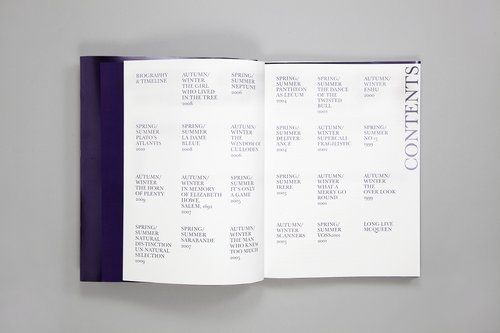 BIOGRAPHY
& TIMELINE
AUTUMN/
WINTER
THE GIRL
WHO LIVED
IN THE TREE
2008
SPRING/
SUMMER
NEPTUNE
2006
SPRING/
SUMMER
PLATO'S
ATLANTIS
2010
SPRING/
SUMMER
LA DAME
BLEUE
2008
AUTUMN/
WINTER
THE
WINDOW OF
CULLODEN
2006
AUTUMN/
WINTER
THE HORN
OF PLENTY
2009
AUTUMN/
WINTER
IN MEMORY
OF ELIZABETH
HOWE,
SALEM, 1692
2007
SPRING/
SUMMER
IT'S ONLY
A GAME
2005
SPRING/
SUMMER
NATURAL
DIS-TINCTION
UN-NATURAL
SELECTION
2009
SPRING/
SUMMER
SARABANDE
2007
AUTUMN/
WINTER
THE MAN
WHO KNEW
TOO MUCH
2005
SPRING/
SUMMER
PANTHEON
AS LECUM
2004
SPRING/
SUMMER
THE DANCE
OF THE
TWISTED
BULL
2002
AUTUMN/
WINTER
ESHU
2000
SPRING/
SUMMER
DELIVER-
ANCE
2004
AUTUMN/
WINTER
SUPERCALI
FRAGILISTIC
2002
SPRING/
SUMMER
NO 13
1999
SPRING/
SUMMER
IRERE
2003
AUTUMN/
WINTER
WHAT A
MERRY GO
ROUND
2001
AUTUMN/
WINTER
THE
OVER LOOK
1999
AUTUMN/
WINTER
SCANNERS
2003
SPRING/
SUMMER
VOSS2001
2001
LONG LIVE
MCQUEEN
CONTENTS